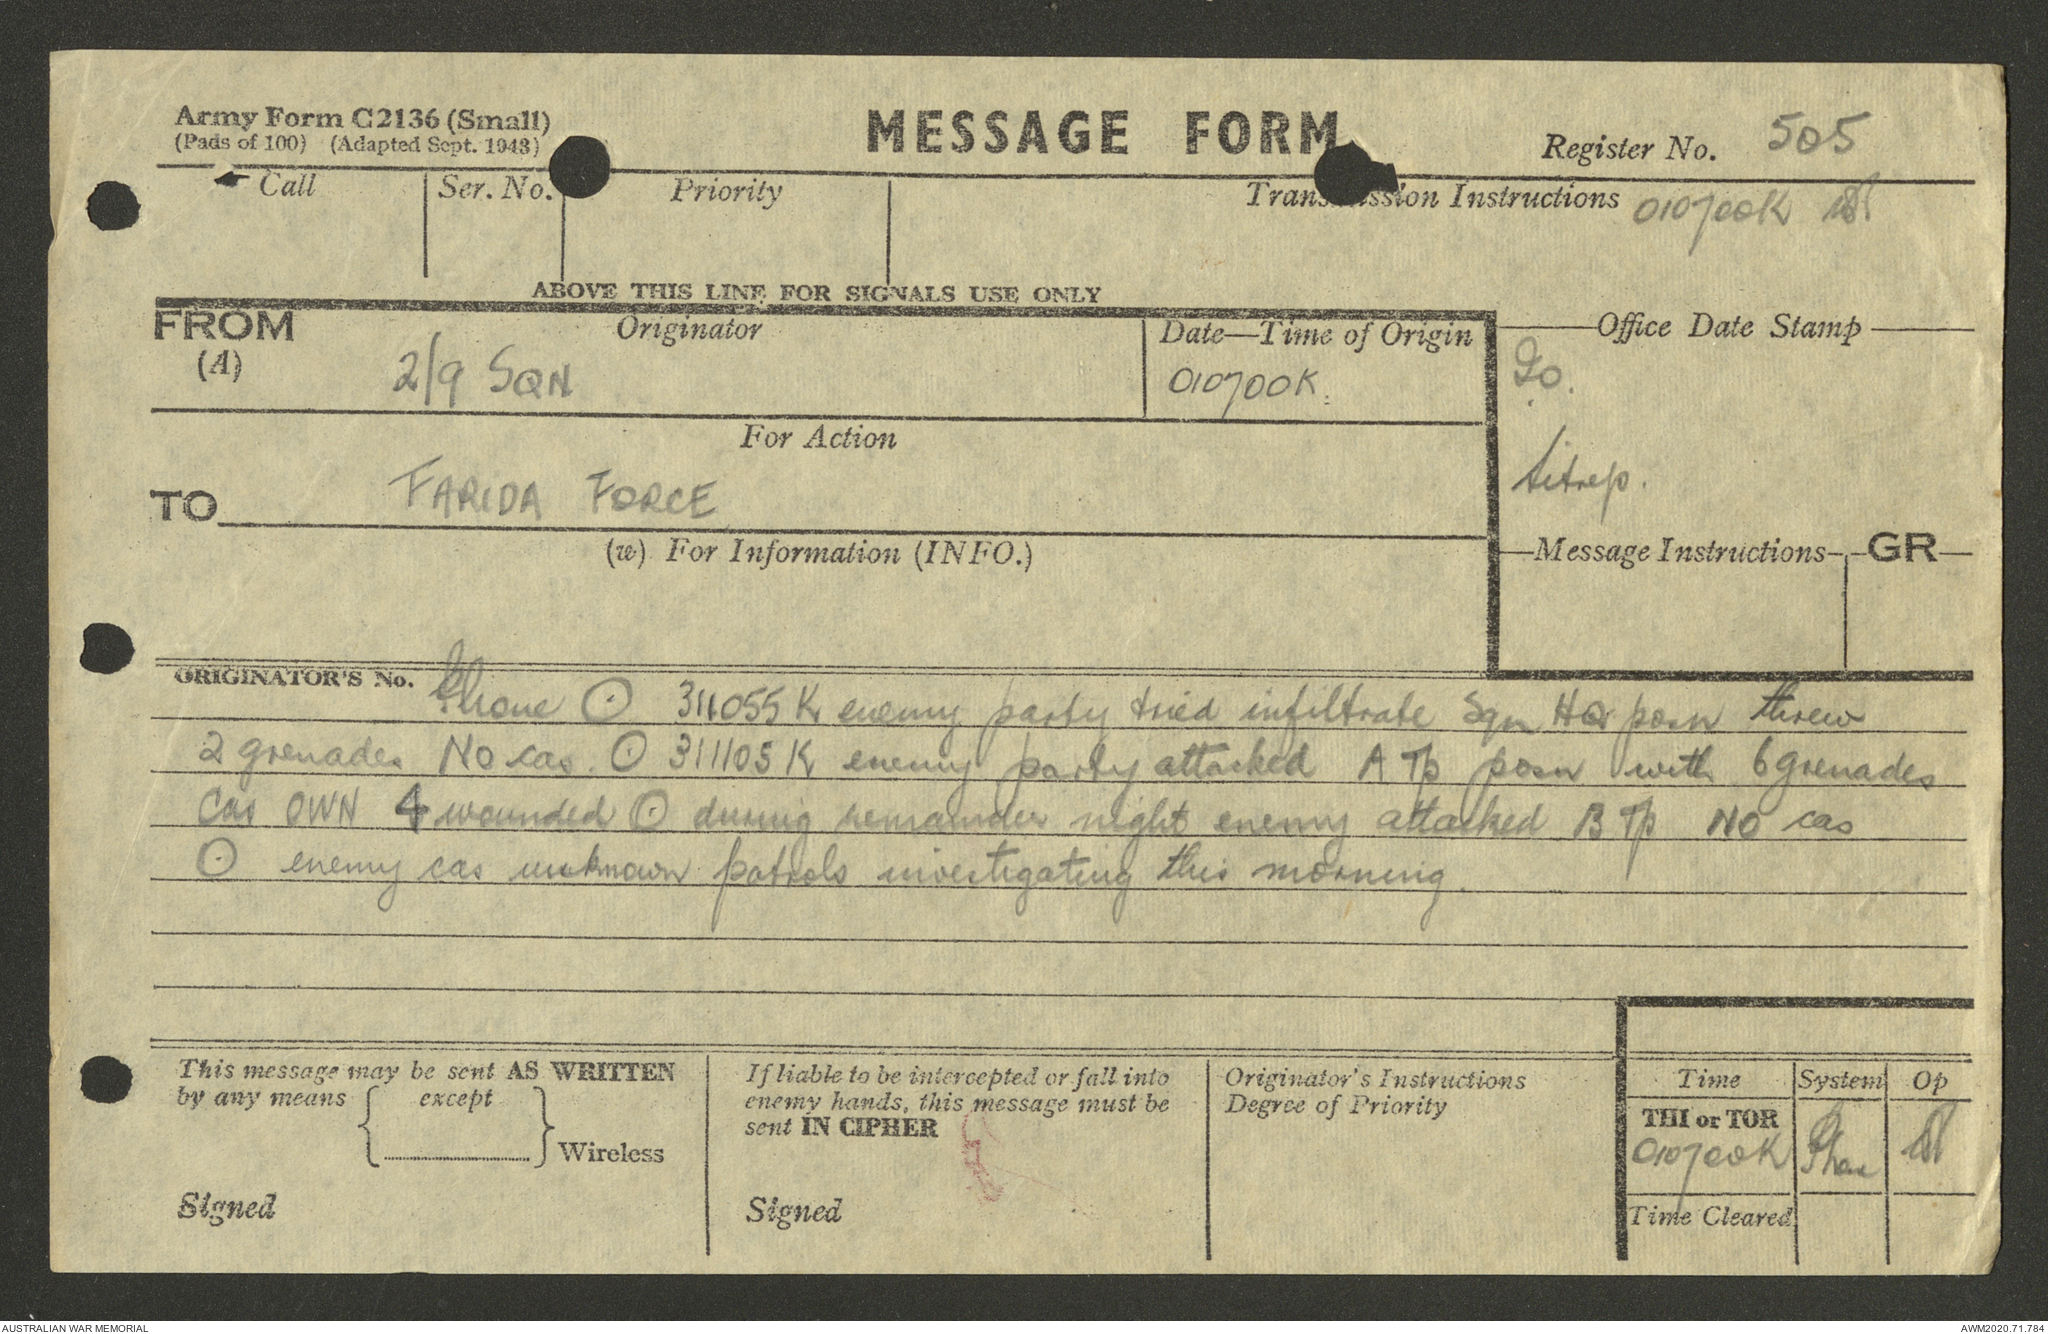 Army Form C2136 (Small)
(Pads of 100) (Adapted Sept. 1943)
MESSAGE FORM
Register No. 505
Call
Ser. No.
Priority
Transmission Instructions 010700K
ABOVE THIS LINE FOR SIGNALS USE ONLY
FROM
(A)
Originator
2/9 SQN
Date—Time of Origin
010700K.
Office Date Stamp
Sitrep.
For Action
TO
FARIDA FORCE
(w) For Information (INFO.)
Message Instructions
GR
ORIGINATOR'S No.
Phone ⊙ 311055K enemy party tried infiltrate Sqn HQ posn threw
2 grenades No cas. ⊙ 311105K enemy party attacked A Tp posn with 6 grenades
Cas OWN 4 wounded ⊙ during remainder night enemy attacked B Tp NO cas
⊙ enemy cas unknown patrols investigating this morning.
This message may be sent AS WRITTEN
by any means { except } Wireless
Signed
If liable to be intercepted or fall into
enemy hands, this message must be
sent IN CIPHER
Signed
Originator's Instructions
Degree of Priority
Time System Op
THI or TOR
010700K Phone
Time Cleared
AUSTRALIAN WAR MEMORIAL
AWM2020.71.784